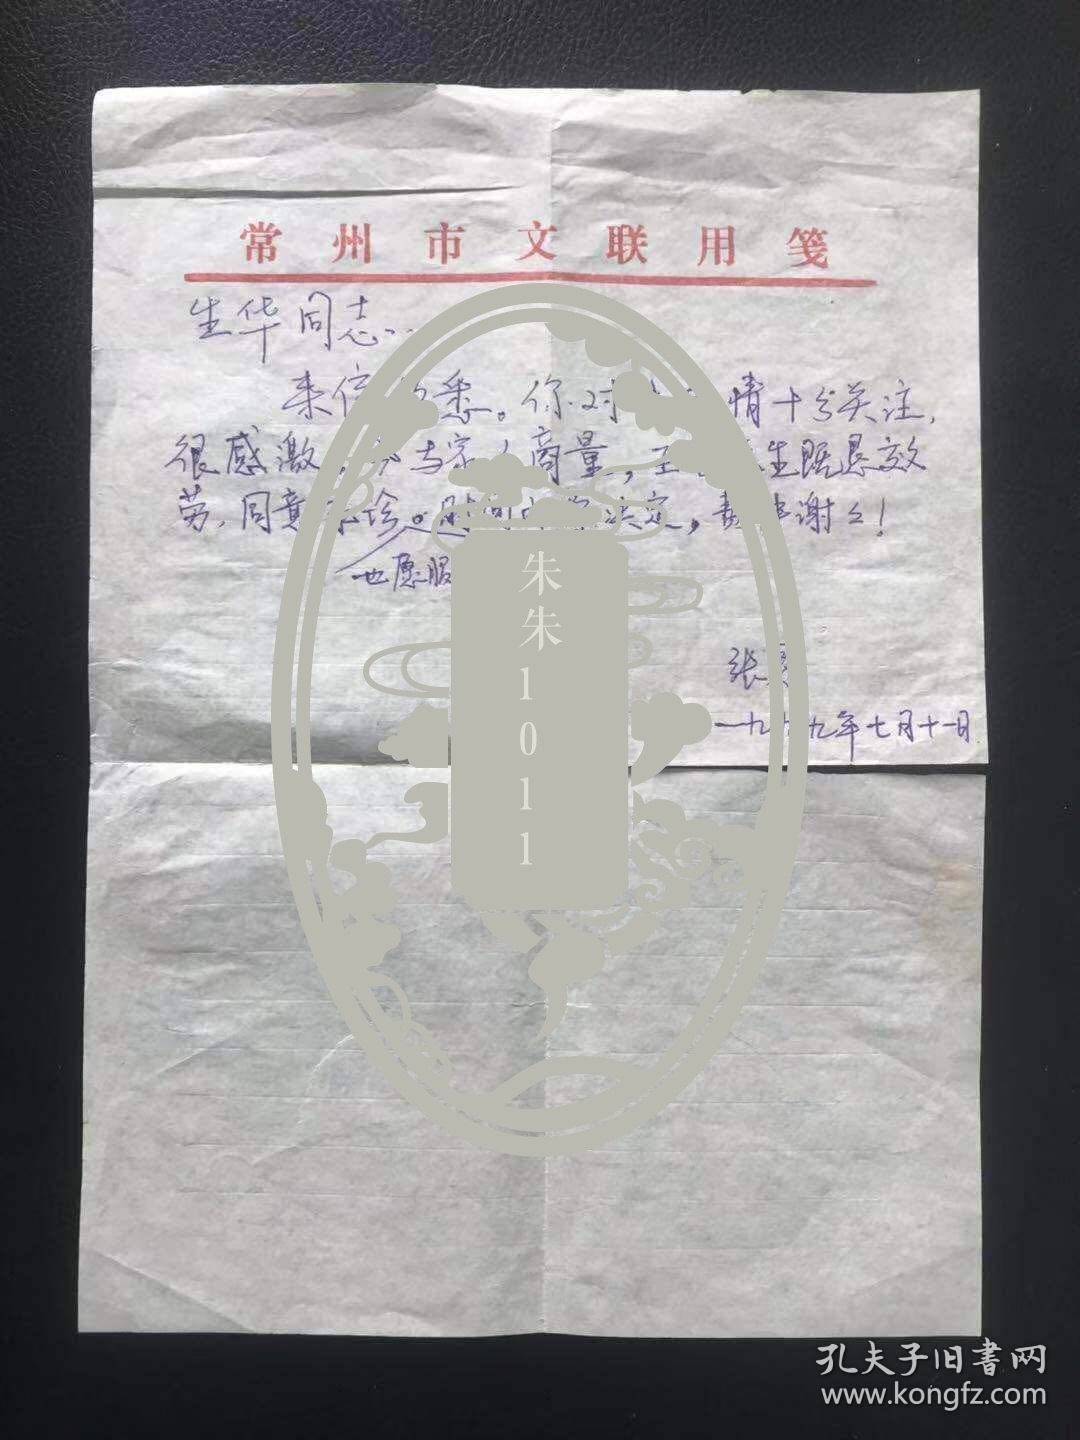 常州市文联用笺
生华同志:
来信 悉。你对 情十分关注,
很感激, 与家人商量, 生既恳效
劳,同意 诊。时间 决定, 谢谢!
也愿服
张
一九九九年七月十一日
朱朱1011
孔夫子旧書网
www.kongfz.com